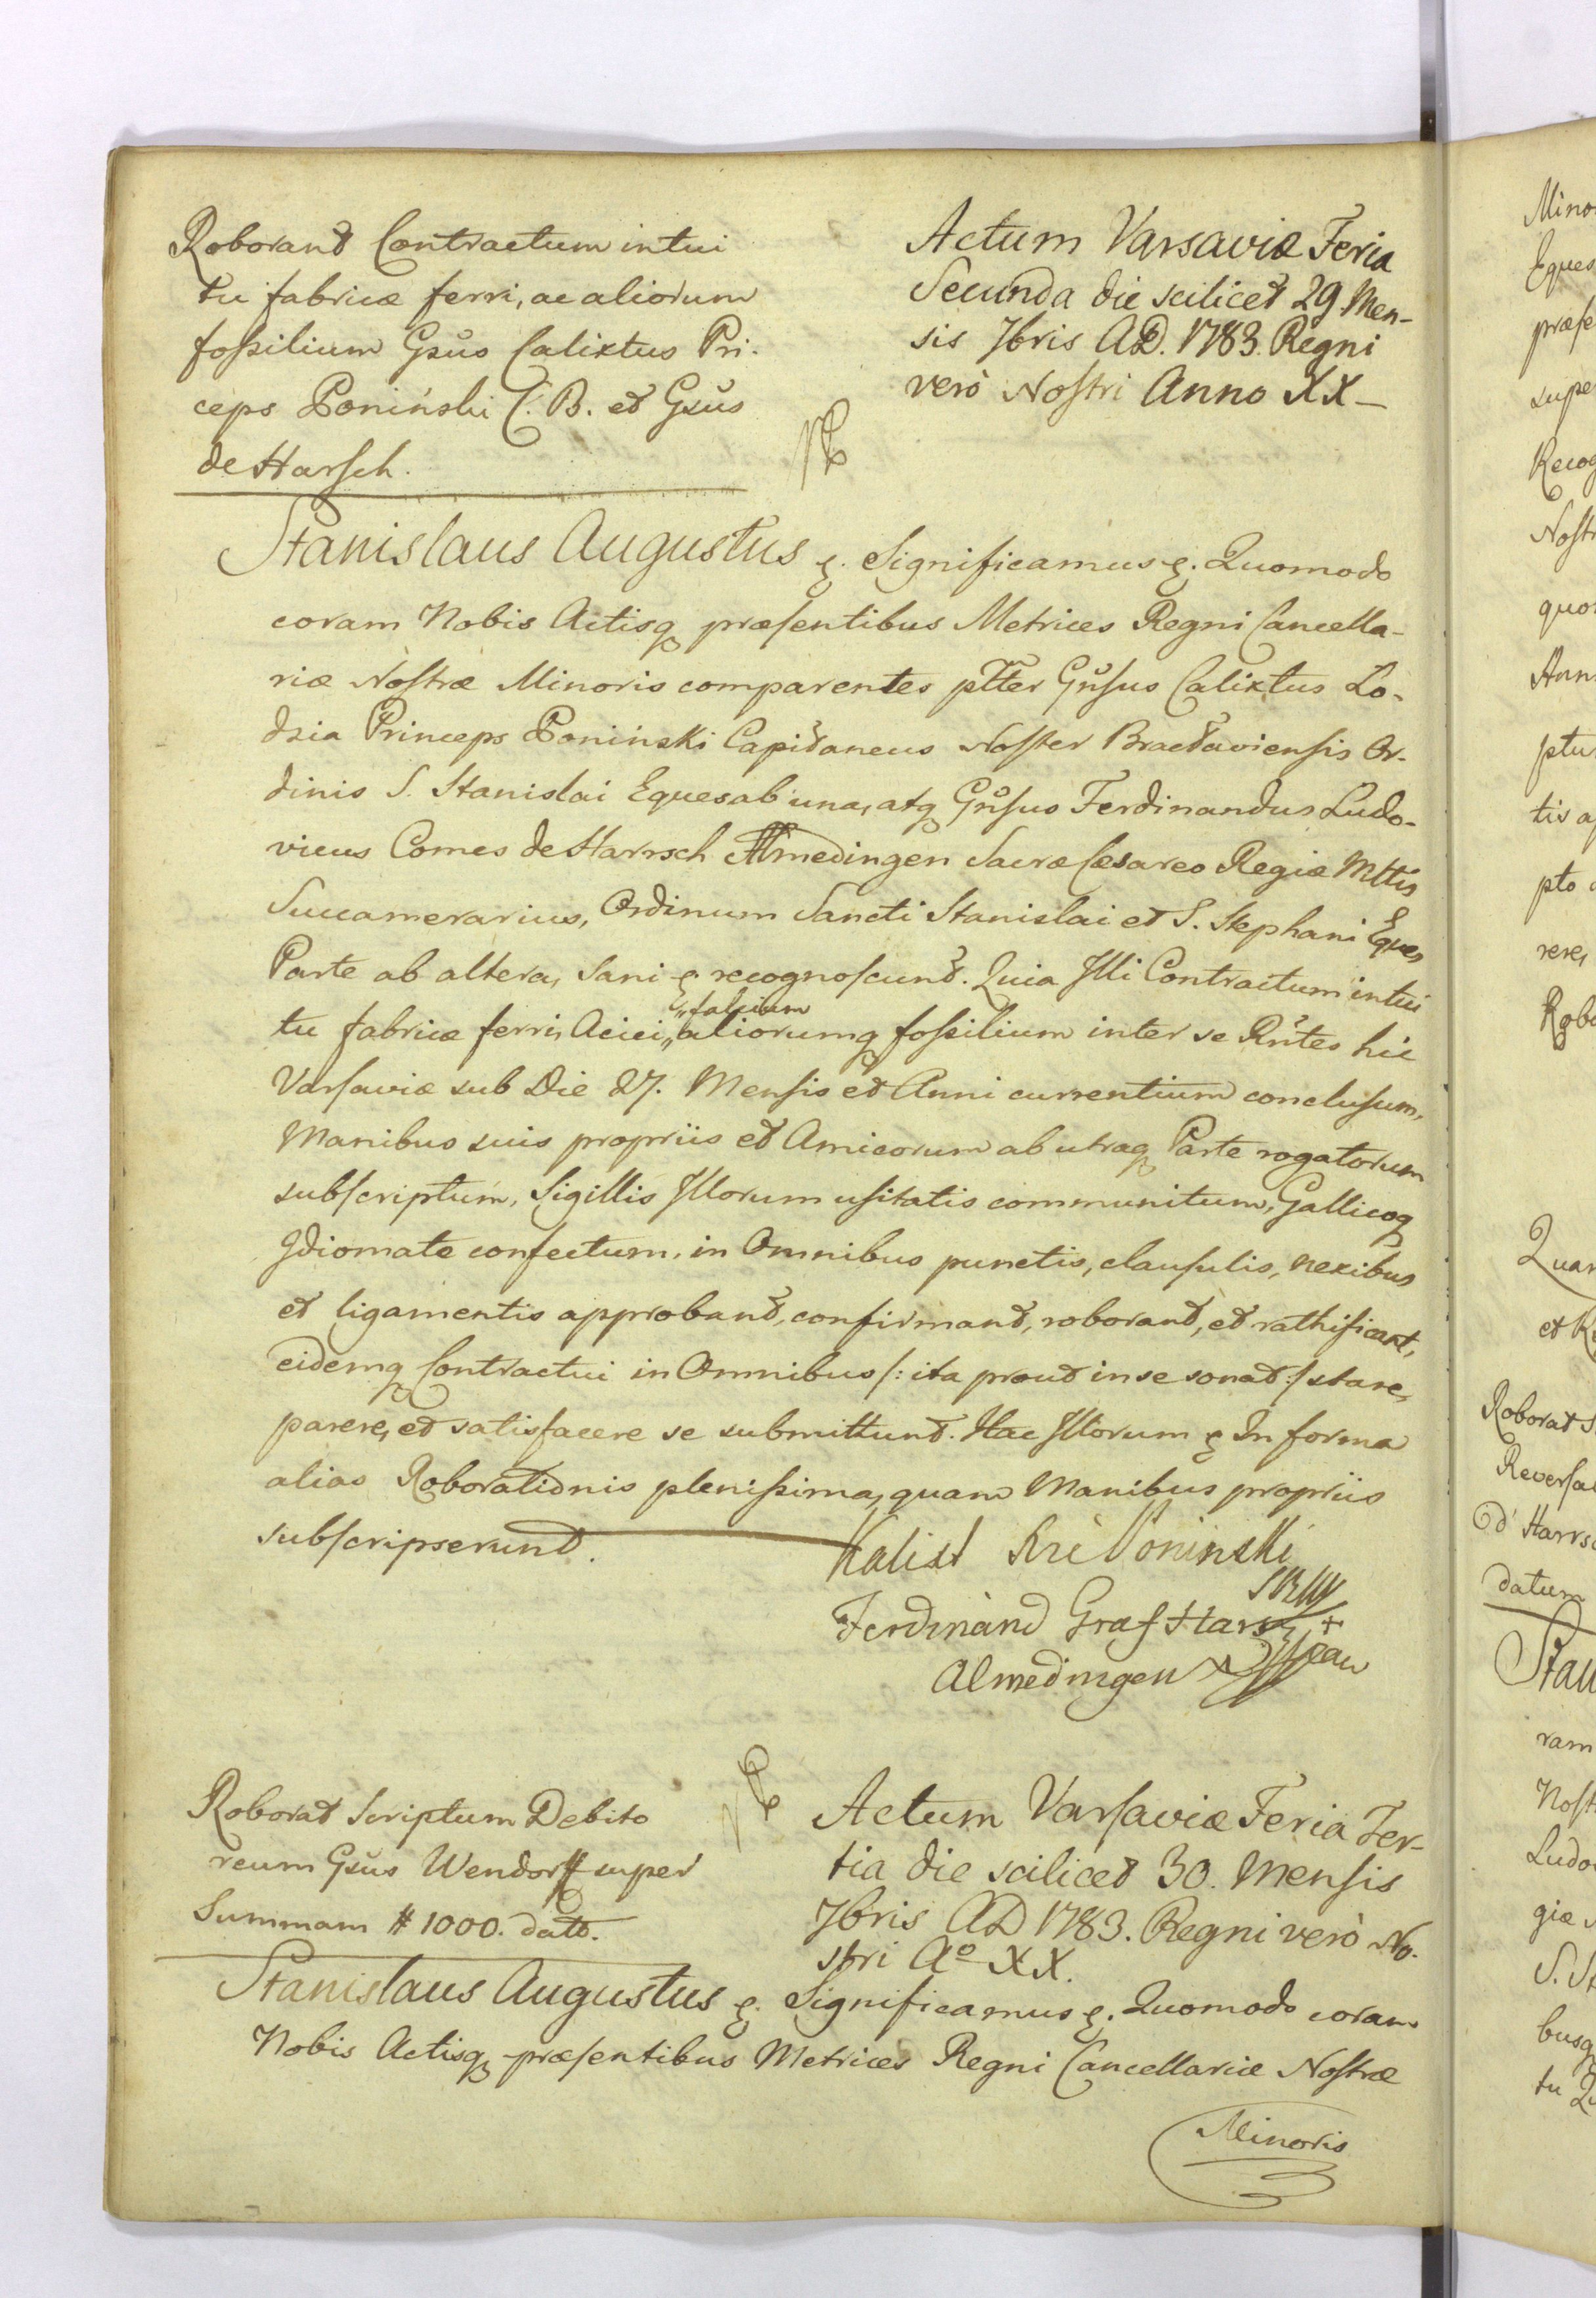 Roborant Contractum intui
tu fabricæ ferri, ac aliorum
foſsilium Gsŭs Calixtus Pri.
ceps Poniński C. B. et Gsŭs
de Harſch.
Actum Varsaviæ Feria
Secunda die scilicet 29 Men-
sis 7bris A.D. 1783. Regni
verò Noſtri Anno XX—
Stanislaus Augustus ę. Significamus ę. Quomodo
coram Nobis Actisq præſentibus Metrices Regni Cancella-
riæ Noſtræ Minoris comparentes ptter Gnſus Calixtus Lo-
dzia Princeps Poniński Capitaneus Noſter Bractavienſis Or-
dinis S. Stanislai Eques ab una, atq Gnſus Ferdinandus Ludo-
vicus Comes de Harrsch Almedingen Sacræ Cæsareo Regiæ Mttis
Succamerarius, Ordinum Sancti Stanislai et S. Stephani Eques
Parte ab altera, Sani ę recognoſcunt. Quia Illi Contractum intui
tu fabricæ ferri, Aciei,, aliorumq foſsilium inter se Rñtes hic
„falcium
Varſaviæ sub Die 27. Menſis et Anni currentium concluſum,
Manibus suis propriis et Amicorum ab utraq Parte rogatorum
subſcriptum, Sigillis Illorum uſitatis communitum, Gallicoq
Idiomate confectum, in Omnibus punctis, clauſulis, nexibus
et ligamentis approbant, confirmant, roborant, et rathificant,
eidemq Contractui in Omnibus /: ita prout in se sonat :/ stare,
parere, et satisfacere se submittunt. Hac Illorum ę In forma
alias Roborationis pleniſsima, quam Manibus propriis
subſcripserunt.
Kalixt Poninski
Ferdinand Graf Harsch
Almedingen
Roborat Scriptum Debito
reum Gsŭs Wendorff super
Summam # 1000. datt.
Actum Varſaviæ Feria Ter-
tia die scilicet 30. Menſis
7bris AD 1783. Regni verò No-
stri Aº XX.
Stanislaus Augustus ę. Significamus ę. Quomodo coram
Nobis Actisq præſentibus Metrices Regni Cancellariæ Noſtræ
Minoris
Eques
præſe
supe
Recog
Noſtr
quo
Ann
ptu
tis a
pto
rere,
Robo
Quar
et R
Roborat S
Reverſa
d'Harrs
datum
Stan
ram
Noſt
Ludo
giæ
S. St
busq
tu